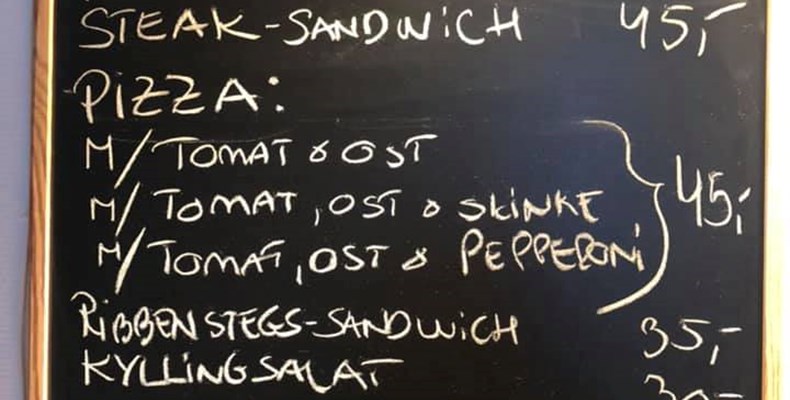 STEAK-SANDWICH 45,-
PIZZA:
M/ TOMAT & OST
M/ TOMAT, OST & SKINKE 45,-
M/ TOMAT, OST & PEPPERONI
RIBBENSTEGS-SANDWICH 35,-
KYLLINGSALAT 30,-